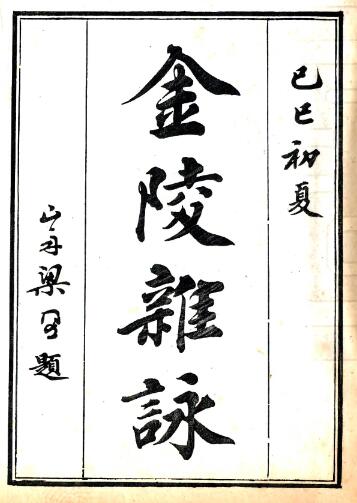 己巳初夏
金陵雜詠
山舟梁同題